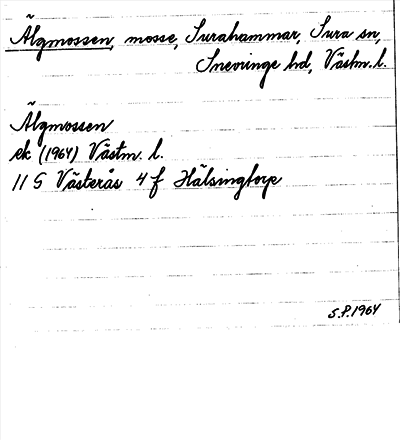 Älgmossen, mosse, Surahammar, Sura sn,
Snevringe hd, Västm. l.
Älgmossen
ek (1964) Västm. l.
11 G Västerås 4 f Hälsingtorp
S.P. 1964